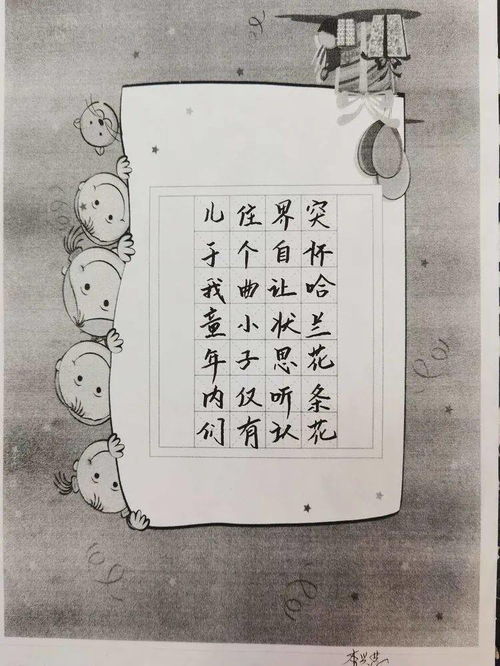 突怀哈兰花条花
界自让状思听认
住个曲小子仅有
儿于我童年内们